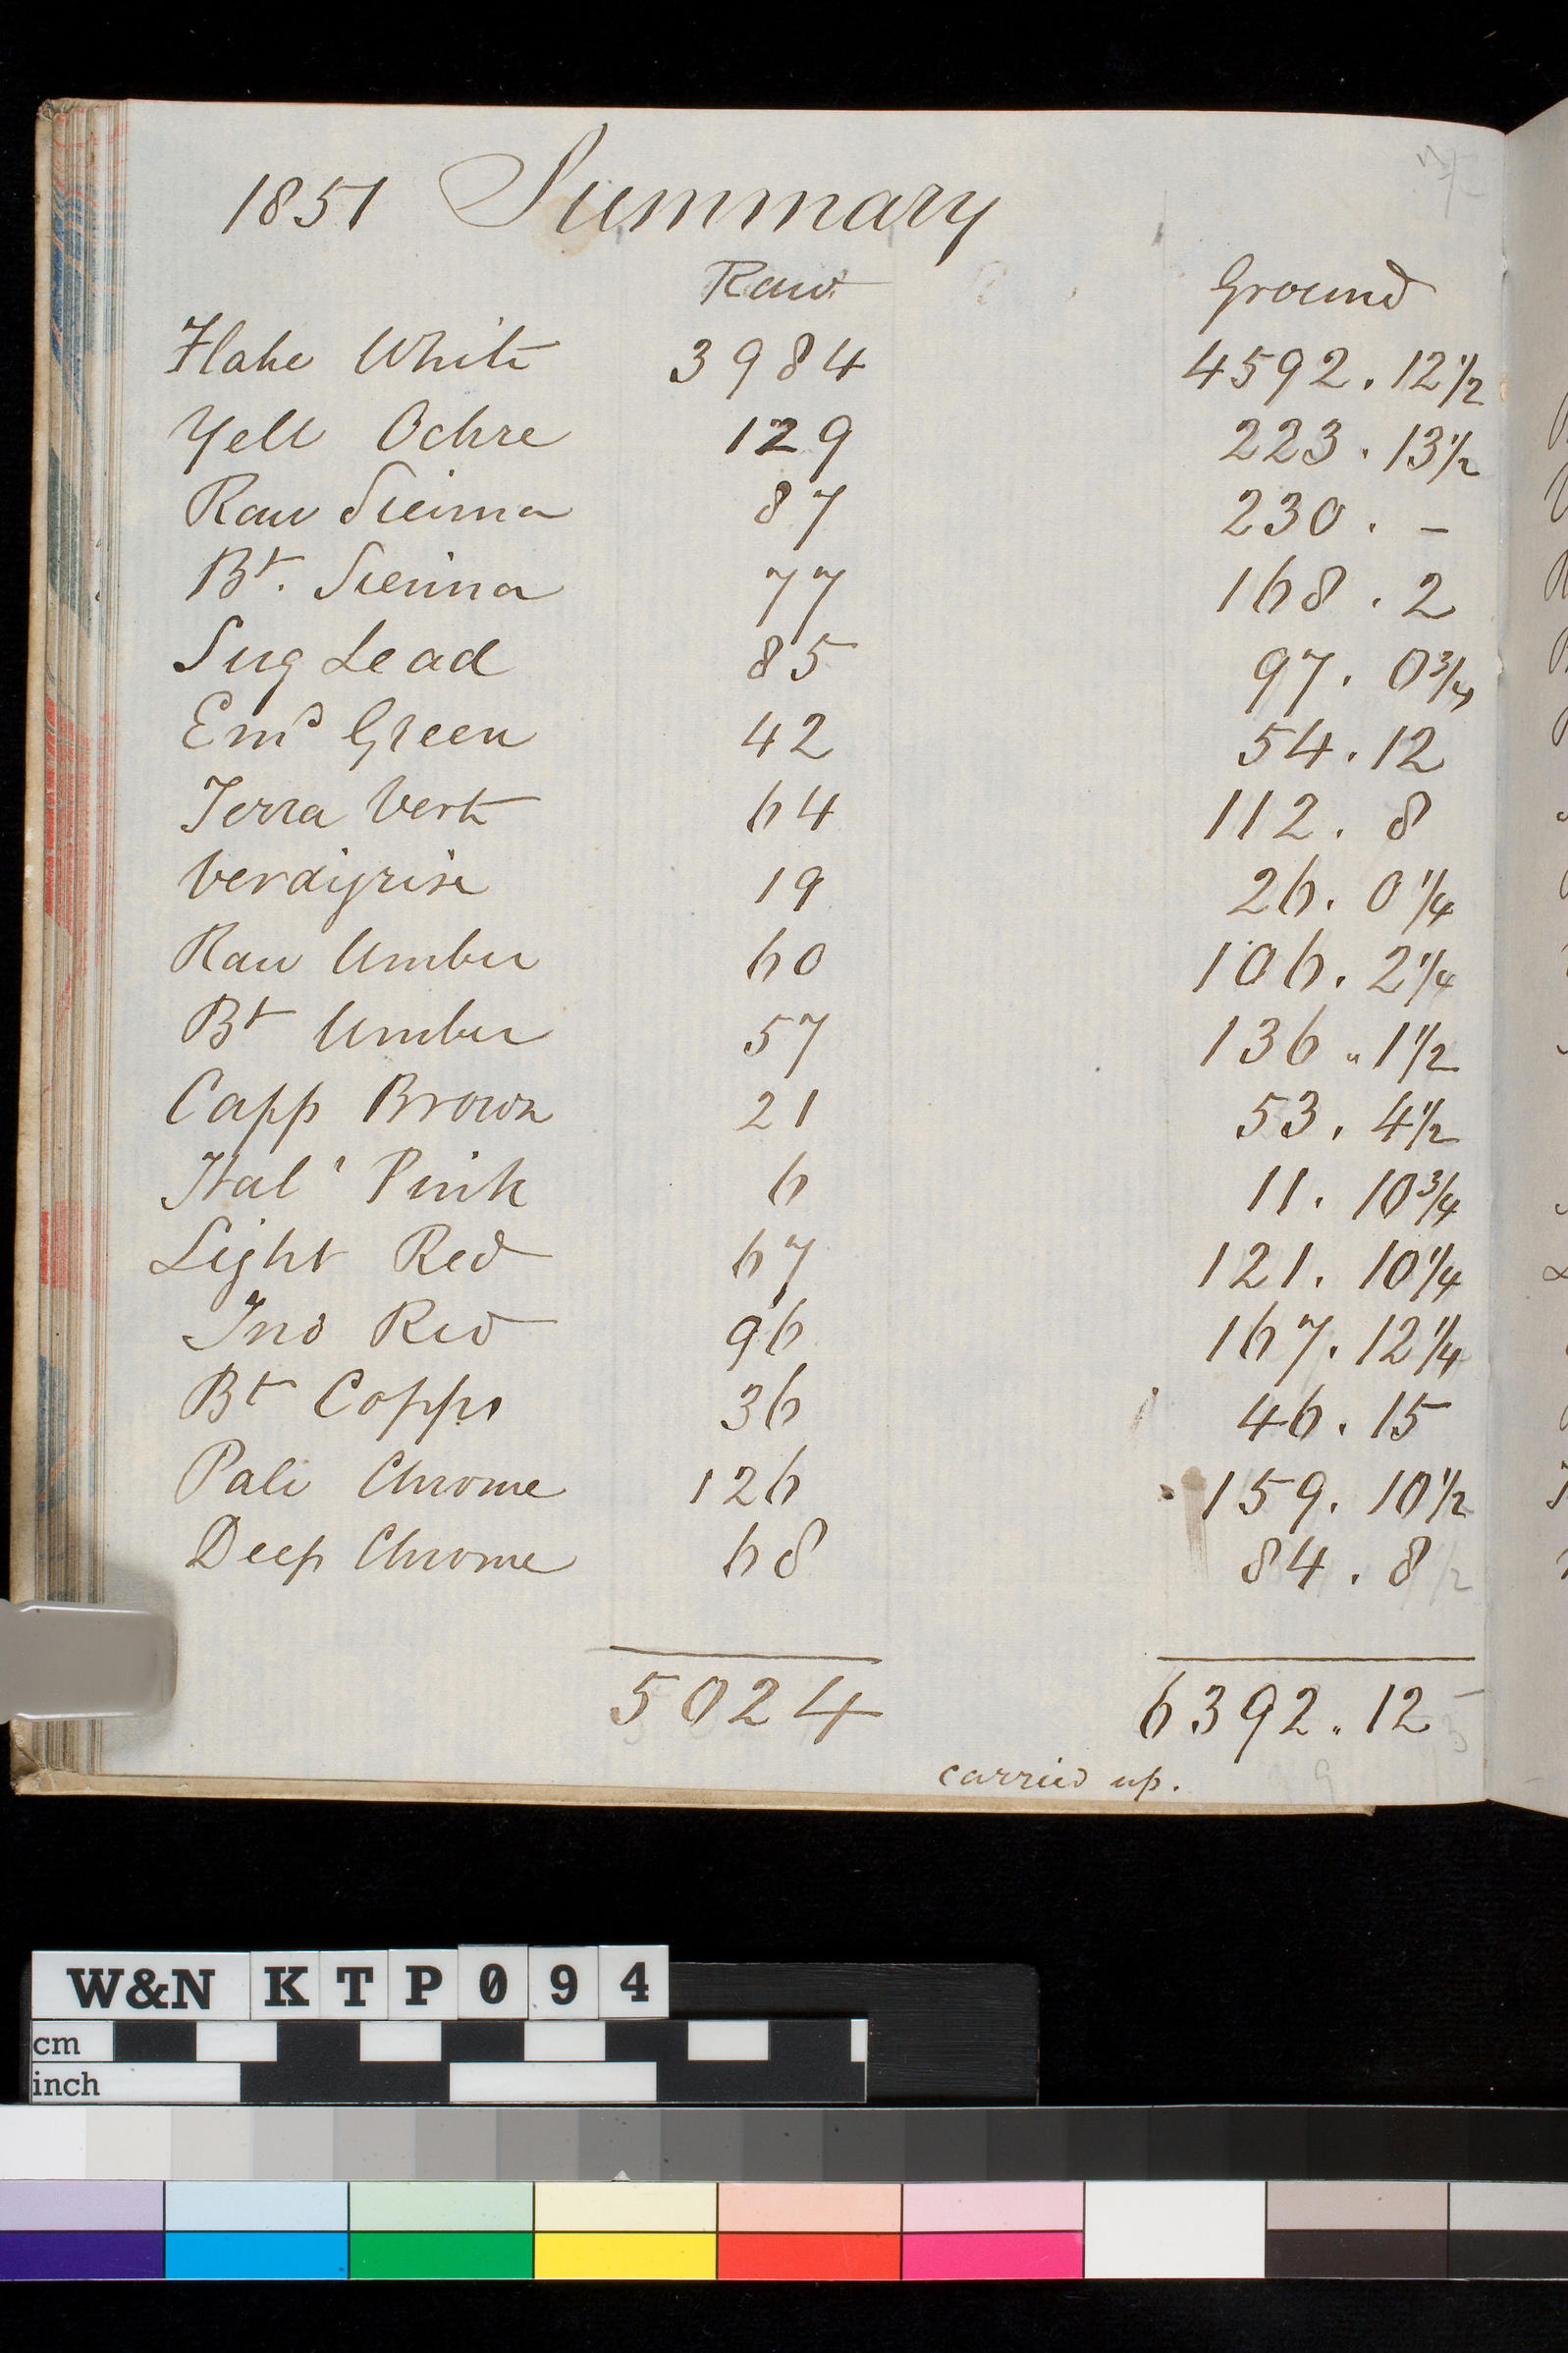 1851 Summary
Raw Ground
Flake White 3984 4592. 12½
Yell Ochre 129 223. 13½
Raw Sienna 87 230. –
Bt. Sienna 77 168. 2
Sug Lead 85 97. 0¾
Emd Green 42 54. 12
Terra Vert 64 112. 8
Verdigris 19 26. 0¼
Raw Umber 60 106. 2¼
Bt Umber 57 136 " 1½
Capp Brown 21 53. 4½
Ital' Pink 6 11. 10¾
Light Red 67 121. 10¼
Ind Red 96 167. 12¼
Bt Copps 36 46. 15
Pale Chrome 126 159. 10½
Deep Chrome 68 84. 8
5024 6392. 12
carried up.
W&N KTP094
cm
inch